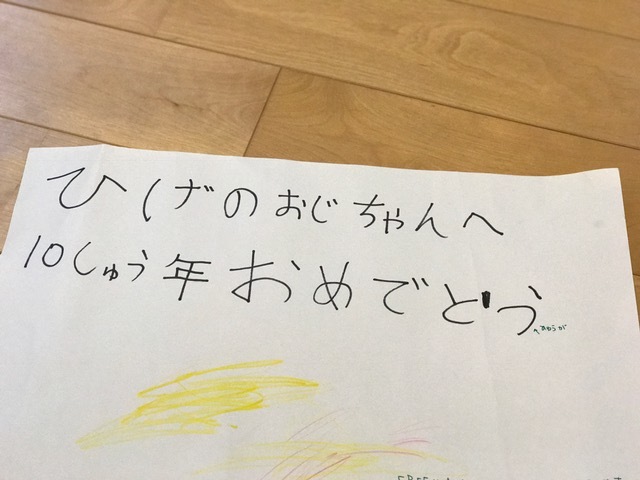 ひげのおじちゃんへ
10しゅう年おめでとう